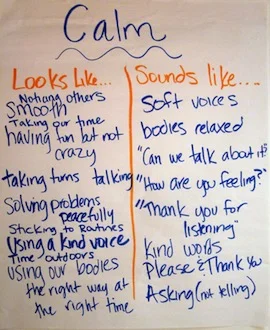 Calm
Looks Like...
Noticing others
Smooth
Taking our time
having fun but not
crazy
taking turns talking
Solving problems
peacefully
Sticking to Routines
Using a kind voice
Time outdoors
using our bodies
the right way at
the right time
Sounds like....
Soft voices
bodies relaxed
"Can we talk about it?"
"How are you feeling?"
"Thank you for
listening"
Kind words
Please & Thank you
Asking (not telling)